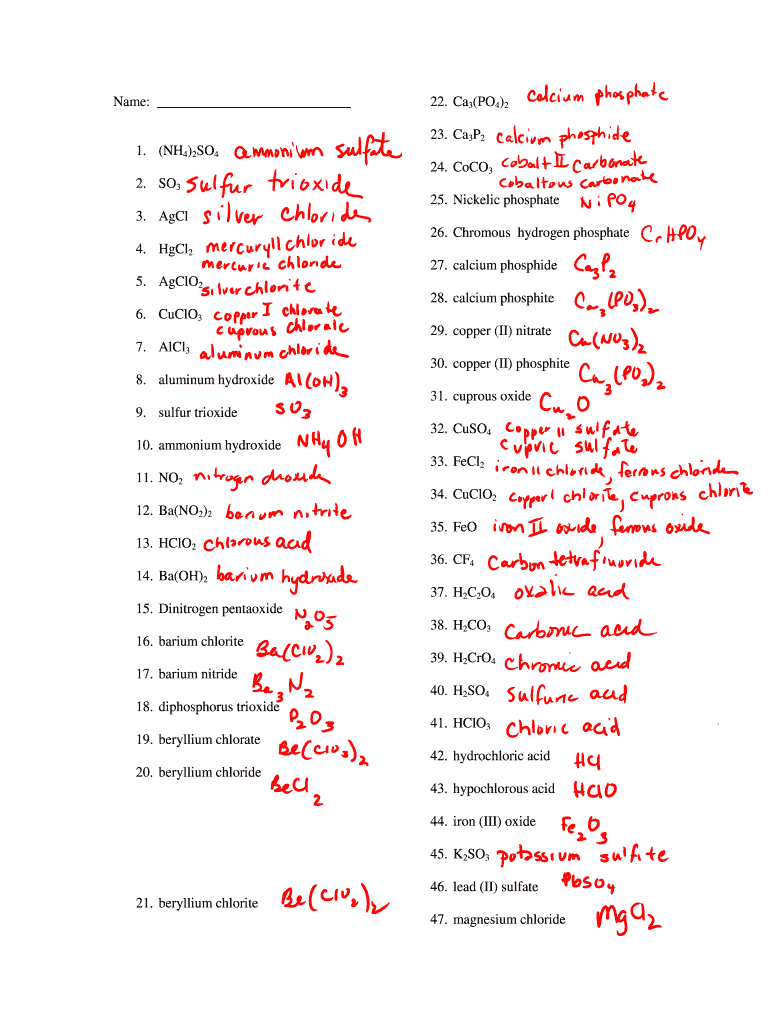 Name:
1. (NH4)2SO4 ammonium sulfate
2. SO3 sulfur trioxide
3. AgCl silver chloride
4. HgCl2 mercury II chloride
mercuric chloride
5. AgClO2 silver chlorite
6. CuClO3 copper I chlorate
cuprous chlorate
7. AlCl3 aluminum chloride
8. aluminum hydroxide Al(OH)3
9. sulfur trioxide SO3
10. ammonium hydroxide NH4OH
11. NO2 nitrogen dioxide
12. Ba(NO2)2 barium nitrite
13. HClO2 chlorous acid
14. Ba(OH)2 barium hydroxide
15. Dinitrogen pentaoxide N2O5
16. barium chlorite Ba(ClO2)2
17. barium nitride Ba3N2
18. diphosphorus trioxide P2O3
19. beryllium chlorate Be(ClO3)2
20. beryllium chloride BeCl2
21. beryllium chlorite Be(ClO2)2
22. Ca3(PO4)2 calcium phosphate
23. Ca3P2 calcium phosphide
24. CoCO3 cobalt II carbonate
cobaltous carbonate
25. Nickelic phosphate NiPO4
26. Chromous hydrogen phosphate CrHPO4
27. calcium phosphide Ca3P2
28. calcium phosphite Ca3(PO3)2
29. copper (II) nitrate Cu(NO3)2
30. copper (II) phosphite Cu3(PO2)2
31. cuprous oxide Cu2O
32. CuSO4 copper II sulfate
cupric sulfate
33. FeCl2 iron II chloride, ferrous chloride
34. CuClO2 copper I chlorite, cuprous chlorite
35. FeO iron II oxide, ferrous oxide
36. CF4 Carbon tetrafluoride
37. H2C2O4 oxalic acid
38. H2CO3 Carbonic acid
39. H2CrO4 chromic acid
40. H2SO4 sulfuric acid
41. HClO3 chloric acid
42. hydrochloric acid HCl
43. hypochlorous acid HClO
44. iron (III) oxide Fe2O3
45. K2SO3 potassium sulfite
46. lead (II) sulfate PbSO4
47. magnesium chloride MgCl2